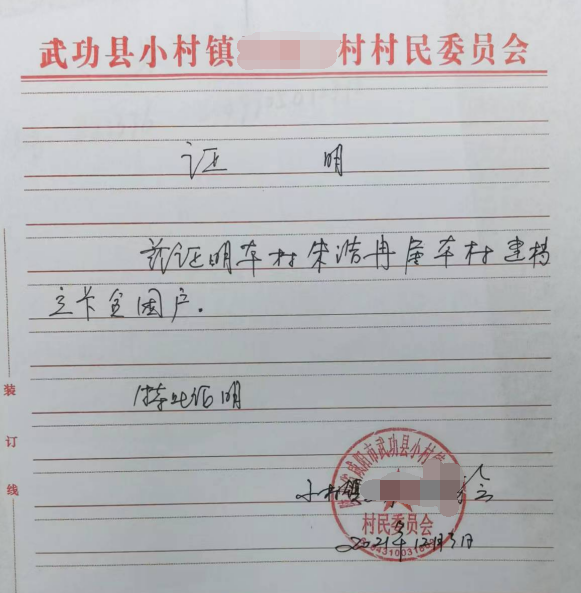 武功县小村镇 村村民委员会
证 明
兹证明本村朱浩冉居本村建档
立卡贫困户.
特此证明
小村镇
陕西省咸阳市武功县小村镇
村民委员会
2021年12月3日
装
订
线